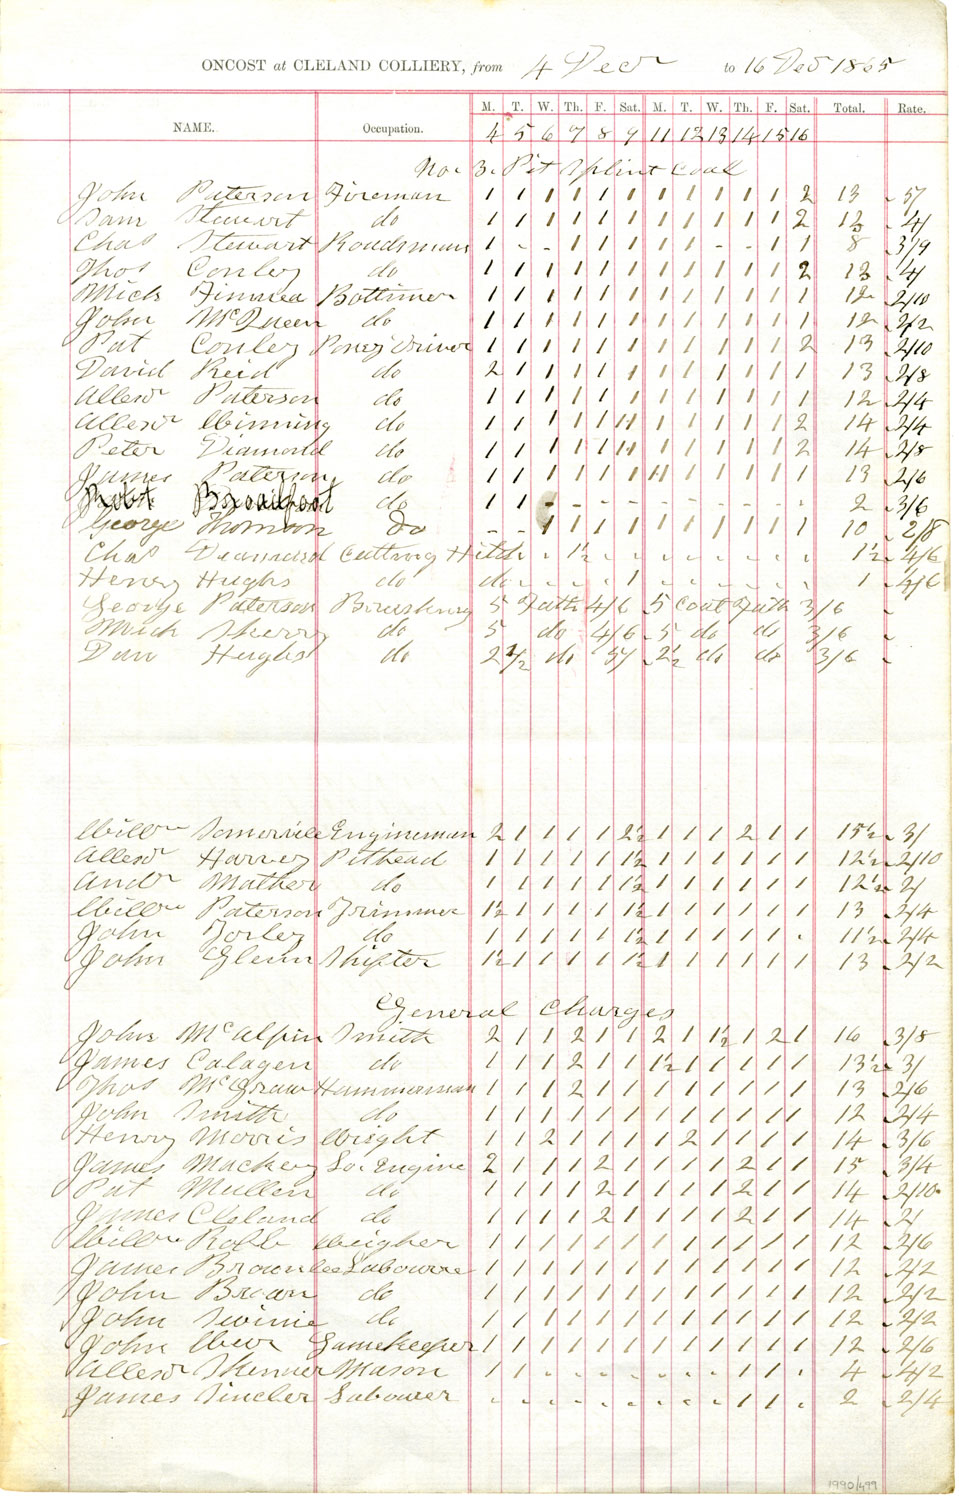 ONCOST at CLELAND COLLIERY, from 4 Decr to 16 Decr 1865
NAME. Occupation. M. T. W. Th. F. Sat. M. T. W. Th. F. Sat. Total. Rate.
4 5 6 7 8 9 11 12 13 14 15 16
No. 3. Pit Splint Coal
John Paterson Fireman 1 1 1 1 1 1 1 1 1 1 1 2 13 5/
Sam Stewart do 1 1 1 1 1 1 1 1 1 1 1 2 13 4/
Chas Stewart Roadsman 1 - - 1 1 1 1 1 - - 1 1 8 3/9
Thos Conley do 1 1 1 1 1 1 1 1 1 1 1 2 13 4/
Mich Finnea Bottimer 1 1 1 1 1 1 1 1 1 1 1 1 12 2/10
John McQueen do 1 1 1 1 1 1 1 1 1 1 1 1 12 2/2
Pat Conley Poney Driver 1 1 1 1 1 1 1 1 1 1 1 2 13 2/10
David Reid do 2 1 1 1 1 1 1 1 1 1 1 1 13 2/8
Allexr Paterson do 1 1 1 1 1 1 1 1 1 1 1 1 12 2/4
Allexr Winning do 1 1 1 1 1 11 1 1 1 1 1 2 14 2/4
Peter Diamond do 1 1 1 1 1 11 1 1 1 1 1 2 14 2/8
James Paterson do 1 1 1 1 1 1 11 1 1 1 1 1 13 2/6
Robt Broadfoot do 1 1 - - - - - - - - - 2 3/6
George Thomson Do - - 1 1 1 1 1 1 1 1 1 1 10 2/8
Chas Diamond Cutting Hitch - 1½ - - - - - - - - 1½ 4/6
Henry Hughs do do - - - - 1 - - - - - - 1 4/6
George Paterson 5 Fath 4/6 5 Coal Fath 3/6
Mich Sherry do 5 do 4/6 5 do do 3/6
Dan Hughs do 2 1/2 do 5/ 2½ do do 3/6
Willm Somerville Engineman 2 1 1 1 1 2½ 1 1 1 2 1 1 15½ 3/
Allexr Harvey Pithead 1 1 1 1 1 1½ 1 1 1 1 1 1 12½ 2/10
Andr Mather do 1 1 1 1 1 1½ 1 1 1 1 1 1 12½ 2/
Willm Paterson Trimmer 1½ 1 1 1 1 1½ 1 1 1 1 1 1 13 2/4
John Torley do 1 1 1 1 1 1½ 1 1 1 1 1 - 11½ 2/4
John Glenn Shifter 1½ 1 1 1 1 1½ 1 1 1 1 1 1 13 2/2
General Charges
John McAlpin Smith 2 1 1 2 1 1 2 1 1½ 1 2 1 16 3/8
James Calagen do 1 1 1 2 1 1 1½ 1 1 1 1 1 13½ 3/
Thos McGraw Hammerman 1 1 1 2 1 1 1 1 1 1 1 1 13 2/6
John Smith do 1 1 1 1 1 1 1 1 1 1 1 1 12 2/4
Henry Morris Wright 1 1 2 1 1 1 1 2 1 1 1 1 14 3/6
James Mackey Lo. Engine 2 1 1 1 2 1 1 1 1 2 1 1 15 3/4
Pat Mullen do 1 1 1 1 2 1 1 1 1 2 1 1 14 2/10
James Cleland do 1 1 1 1 2 1 1 1 1 2 1 1 14 2/
Willm Robb Weigher 1 1 1 1 1 1 1 1 1 1 1 1 12 2/6
James Brownlee Labourre 1 1 1 1 1 1 1 1 1 1 1 1 12 2/2
John Brown do 1 1 1 1 1 1 1 1 1 1 1 1 12 2/2
John Swinie do 1 1 1 1 1 1 1 1 1 1 1 1 12 2/2
John Weir Gamekeeper 1 1 1 1 1 1 1 1 1 1 1 1 12 2/6
Allexr Skinner Mason 1 1 - - - - - - - 1 1 - 4 4/2
James Sincler Labourer - - - - - - - - - 1 1 - 2 2/4
1990/499